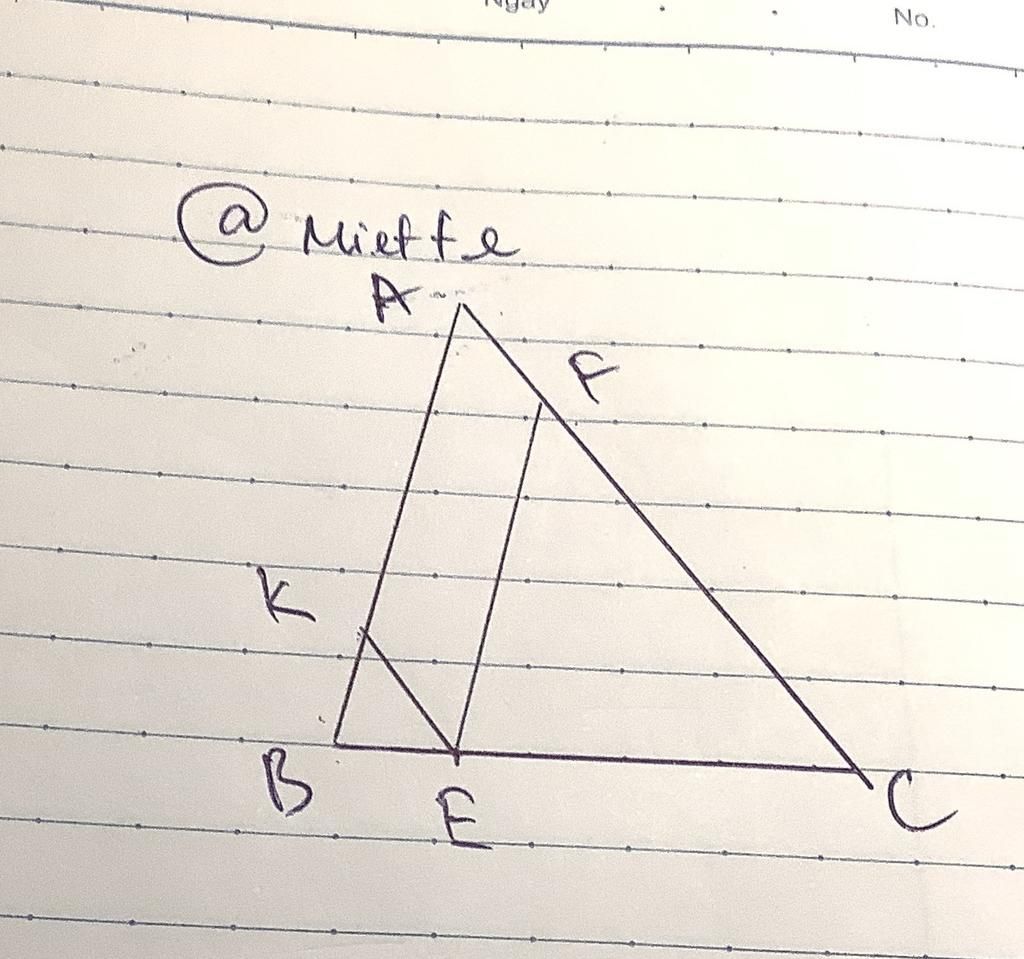 Ngày
No.
@ Mieffe
A
F
K
B
E
C